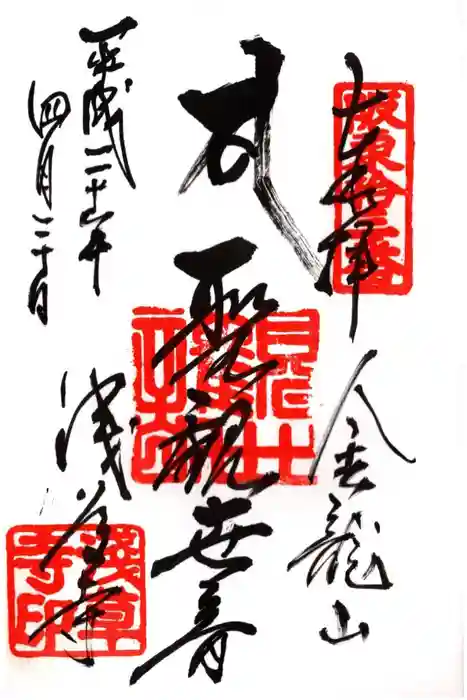 奉拝
坂東拾三番
金龍山
聖観世音
平成二十二年
四月二十日
浅草寺
浅草寺印